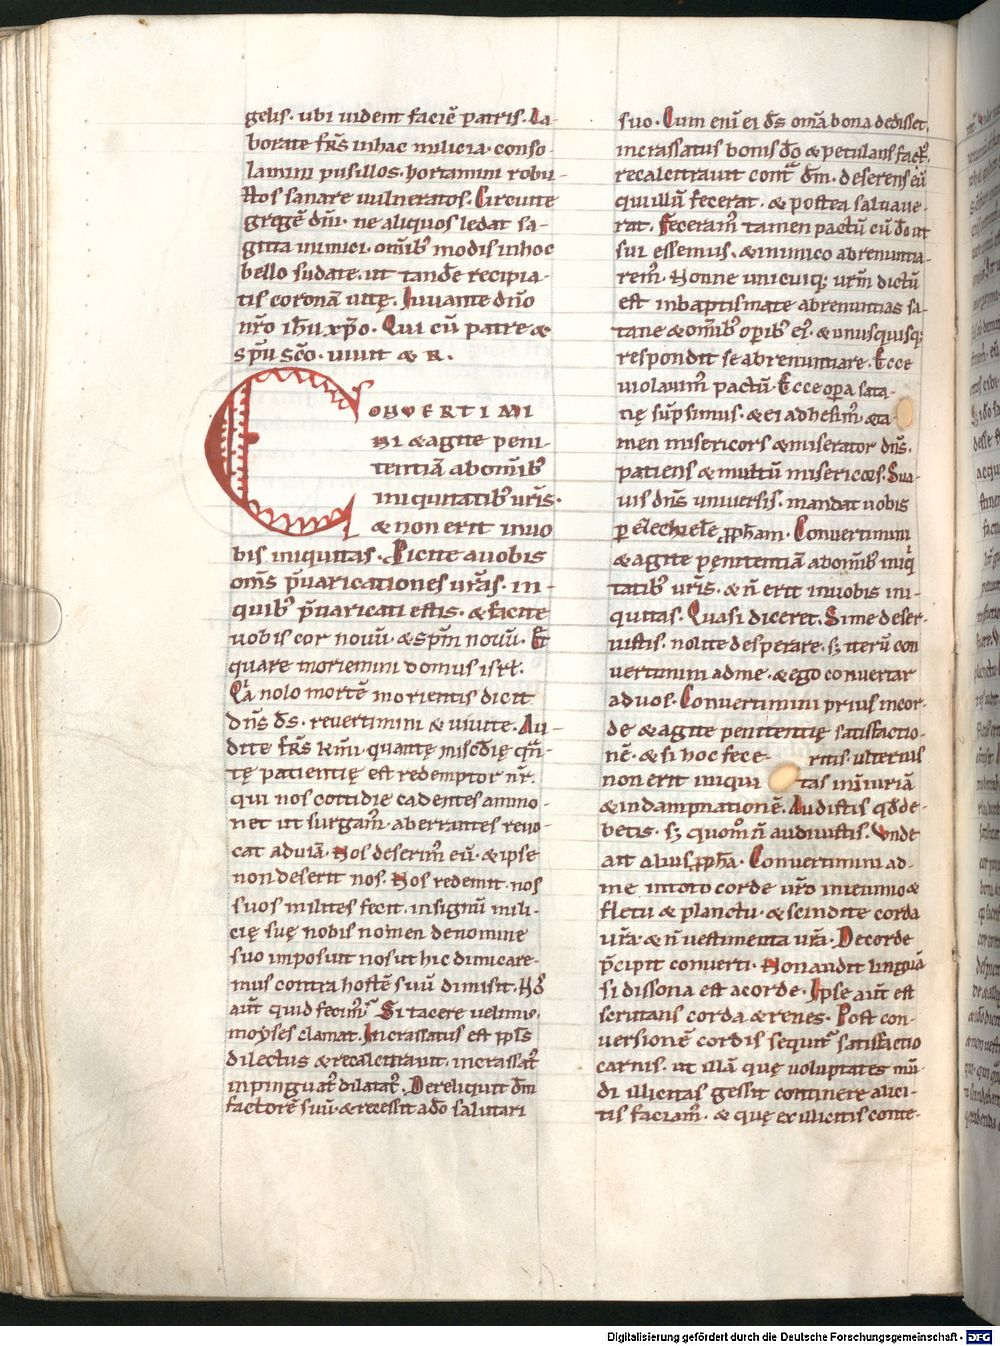 gelis· ubi uident faciē patris. La-
borate fr̄s inhac milicia· conso-
lamini pusillos· hortamini robu-
stos sanare uulneratos. Circuite
gregē dn̄i· ne aliquos ledat sa-
gitta inimici· omībꝰ modis inhoc
bello sudate· ut tandē recipia-
tis coronā uitę. Iuuante dn̄o
nr̄o ih̄u xp̄o· Qui cū patre &
sp̄u sc̄o· uiuit & R.
CONVERTIMI
NI & agite peni-
tentiā abomībꝰ
iniquitatibꝰ ur̄is·
& non erit inuo
bis iniquitas. Piicite auobis
om̄s p̄uaricationes ur̄as· in-
quibꝰ p̄uaricati estis· & facite
uobis cor nouū· & sp̄m nouū. Et
quare moriemini domus isrl̄.
Qa nolo mortē morientis dicit
dn̄s ds̄· reuertimini & uiuite. Au-
dite fr̄s km̄i· quantę misc̄dię qn̄-
tę patientię est redemptor nr̄·
qui nos cottidie cadentes ammo-
net ut surgam̄· aberrantes reuo-
cat aduiā. Nos deserim̄ eū· & ipse
non deserit nos. Nos redemit· nos
suos milites fecit· insignū mili-
cię suę nobis nomen denomine
suo imposuit nosut hic dimicare-
mus contra hostē suū dimisit. Nos
aut̄ quid fecim̄? Si tacere uelimꝰ·
moyses clamat. Incrassatus est ppl̄s
dilectus & recalcitrauit· incrassatꝰ
inpinguatꝰ dilatatꝰ. Dereliquit dm̄
factorē suū· & recessit ado salutari
suo. Cum eni ei ds̄ omā bona dedisset·
incrassatus bonis do & petulans factꝰ·
recalcitrauit cont dm̄· deserens eū
qui illū fecerat· & postea saluaue-
rat. Feceram̄ tamen pactū cū do ut
sui essemus· & inimico abrenuntia-
rem̄. Nonne unicuiqꝫ urm̄ dictū
est inbaptismate abrenuntias sa-
tane & omībꝰ opībꝰ eiꝰ· & unusquisqꝫ
respondit se abrenuntiare. Ecce
uiolauim̄ pactū. Ecce opera sata-
nę sūpsimus· & ei adhesim̄· & ta-
men misericors & miserator dn̄s·
patiens & multū misericors. Sua-
uis dn̄s uniuersis· mandat uobis
p ezechielē pph̄am. Conuertimini
& agite penitentiā abomībꝰ iniqi
tatibꝰ ur̄is· & n̄ erit inuobis ini-
quitas. Quasi diceret. Si me deser-
uistis· nolite desperare· sꝫ iterū con
uertimini adme· & ego conuertar
aduos. Conuertimini prius incor-
de & agite penitentię satisfactio-
nē· & si hoc fece- ritis· ulterius
non erit iniqui tas iniuriā
& indampnationē. Audistis qd de-
betis· sꝫ quom̄ n̄ audiuistis. Unde
ait alius pph̄a. Conuertimini ad-
me intoto corde ur̄o inieiunio &
fletu & planctu· & scindite corda
ur̄a· & n̄ uestimenta ur̄a. Decorde
p̄cipit conuerti. Non audit linguā
si dissona est acorde. Ipse aut̄ est
scrutans corda & renes. Post con-
uersionē cordis sequitꝰ satisfactio
carnis· ut illā quę uoluptates mū-
di illicitas gessit continere alici-
tis faciam̄· & quę ex illicitis conte-
Digitalisierung gefördert durch die Deutsche Forschungsgemeinschaft - DFG